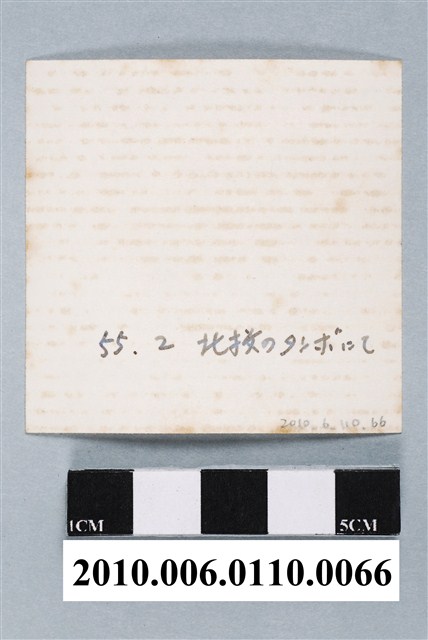 55.2 北投のタンボにて
2010.6.110.66
1CM
5CM
2010.006.0110.0066